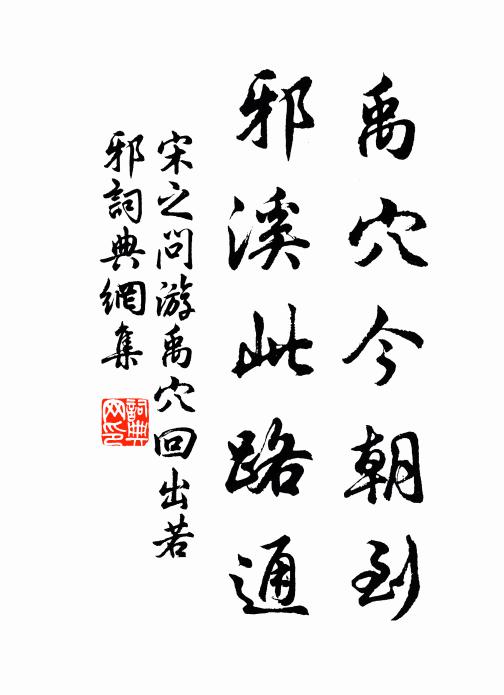 禹穴今朝到
邪溪此路通
宋之问游禹穴回出若
邪詞典網集
詞典
网印